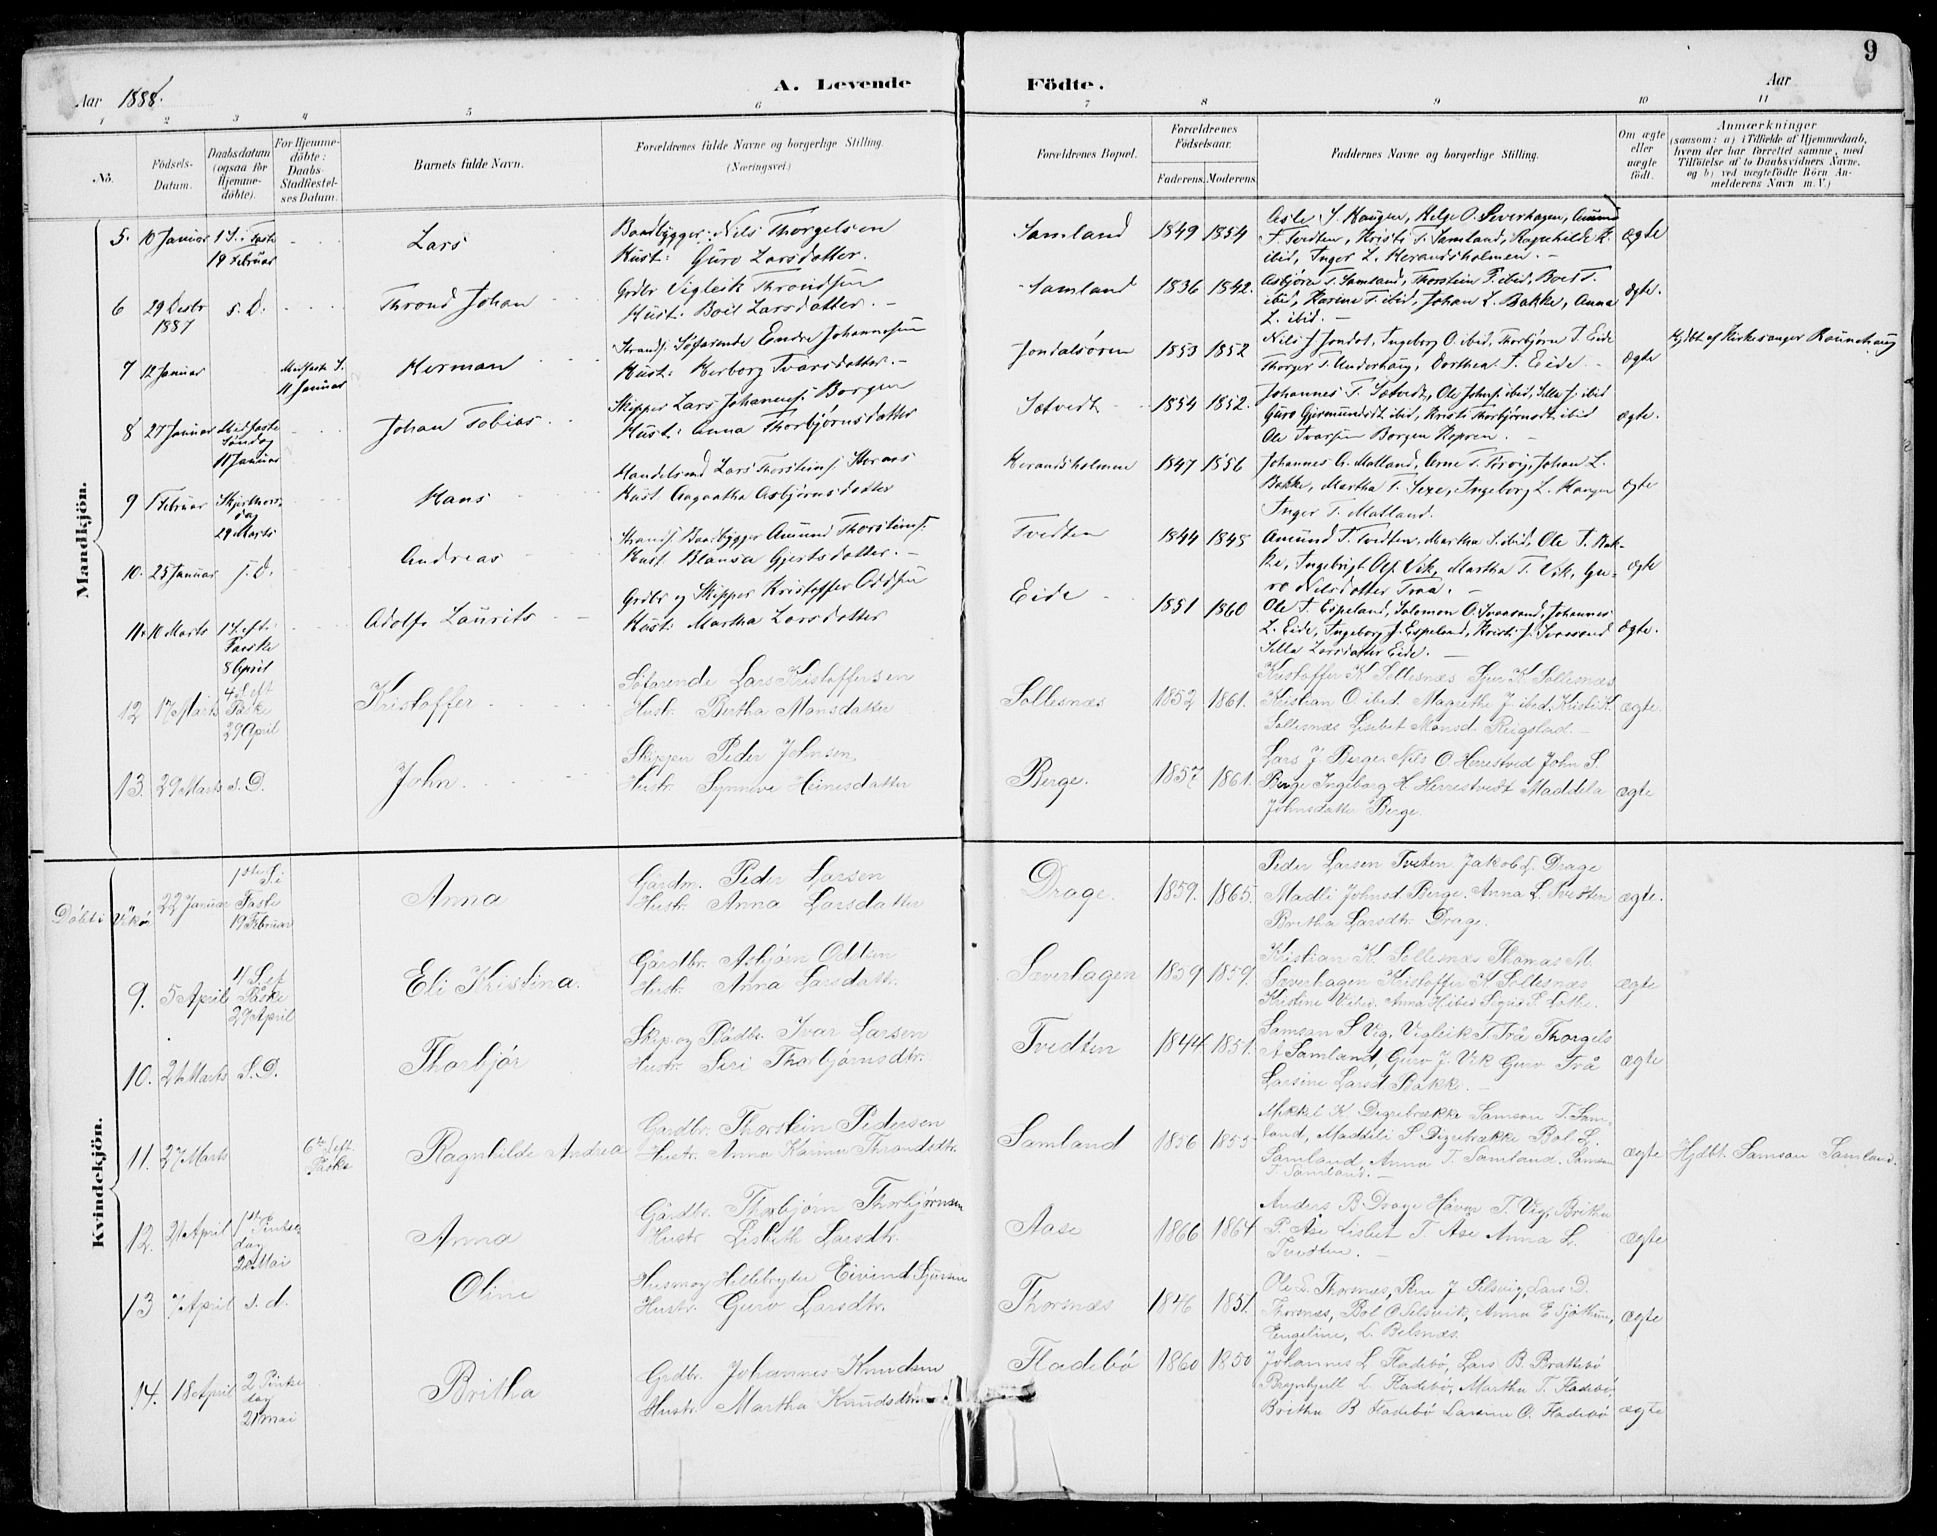 9
Aar 1888.
A. Levende Födte.
Aar
1 2 3 4 5 6 7 8 9 10 11
No.
Födsels-Datum.
Daabsdatum (ogsaa for Hjemme-döbte).
For Hjemme-döbte: Daabs-Stadfæstel-ses Datum.
Barnets fulde Navn.
Forældrenes fulde Navne og borgerlige Stilling. (Næringsvei.)
Forældrenes Bopæl.
Forældrenes Födselsaar.
Faderens. Moderens.
Faddernes Navne og borgerlige Stilling.
Om ægte eller uægte födt.
Anmærkninger
(saasom: a) i Tilfælde af Hjemmedaab,
hvem der har forrettet samme, med
Tilföielse af to Daabsvidners Navne,
og b) ved uægtefödte Börn An-
melderens Navn m. V.)
Mandkjön.
5. 10 Januar 1 S. i Faste 19 Februar
Lars
Baadbygger: Nils Thorgelsen
Hust: Guro Larsdatter.
Samland 1849 1854
Asle S. Haugen, Helge O. Severhagen, Amund
T. Tvedten, Kristi T. Samland, Ragnhilde K.
ibid, Inger L. Herandsholmen.
ægte
6 29 Decbr 1887 s. D.
Thrond Johan
Grdbr Vigleik Throndsen
Hust: Boel Larsdatter.
Samland 1836 1842.
Asbjörn T. Samland, Thorstein P. ibid, Boel T.
ibid, Karine T. ibid, Johan L. Bakke, Anna
L. ibid.
ægte.
7 12 Januar Midfaste S. 11 Januar
Herman
Strands. Söfarende Endre Johannesen
Hust: Herborg Ivarsdatter.
Jondalsören 1853 1852
Nils J Jondal, Ingeborg O. ibid. Thorbjörn T. Eide
Thorger T. Underhaug, Dorthea T. Eide.
ægte
Hjdbt af Kirkesanger Raunehaug
8 27 Januar Midfaste Søndag 11 Januar
Johan Tobias.
Skipper Lars Johannes. Borgen
Hust: Anna Thorbjörnsdatter
Sætvedt 1854 1852.
Johannes T. Sætvedt, Ole Johns. ibid, Silla J. ibid
Guro Gjermundsdt ibid, Kristi Thorbjörnsdt ibid
Ole Ivarsen Borgen
ægte.
9 1 Februar Skjærthors-dag 29 Marts
Hans
Handelsmd Lars Thorsteins.
Hust Aagaatha Asbjörnsdatter
Herandsholmen 1847 1856
Johannes A. Malland, Arne T. Johan L.
Bakke, Martha T. Sexe, Ingeborg L. Haugen
Inger T. Malland.
ægte
10. 25 Januar s. D.
Andreas
Strands. Baadbygger Amund Thorsteins.
Hust Blansa Gjertsdatter.
Tvedten 1844 1845
Amund T. Tvedten, Martha S. ibid, Ole T. Bak-
ke, Ingebrigt Ols. Vik, Martha T. Vik, Gu-
ro Nilsdatter Traa.
ægte
11. 10 Marts 1 S. eft. Paaske 8 April
Adolf Laurits
Grdbr og Skipper Kristoffer Oddsen
Hust: Martha Larsdatter
Eide 1851 1860
Ole T Espeland, Salomon O. Svaasand, Johannes
L. Eide, Ingeborg J. Espeland, Kristi J. Svaasand
Silla Larsdatter Eide.
ægte.
12 17 Marts 4 S. eft Påske 29 April
Kristoffer
Söfarende Lars Kristoffersen
Hustr. Bertha Monsdatter
Sollesnæs 1852 1861.
Kristoffer K. Sollesnæs Sjur K. Sollesnæs
Kristian O ibid. Magrethe J. ibid, Kristi K.
Sollesnæs Lisebet Monsd. Reigstad.
ægte.
13. 29 Marts s. D.
John.
Skipper Peder Johnsen
Hustr. Synneve Heinesdatter
Berge. 1857 1861.
Lars J. Berge. Nils O. Herrestved John S.
Berge Ingeborg H. Herrestvedt Maddela
Johnsdatter Berge.
ægte
Kvindekjön.
Döbt i Vikö 22 Januar 1ste S. i Faste 19 Februar
Anna
Gårdm. Peder Larsen
Hustr. Anna Larsdatter
Drage. 1859. 1865.
Peder Larsen Tveten Jakob L. Drage
Madli Johnsd. Berge. Anna L. Tveten
Britha Larsdtr. Drage.
ægte.
9. 5 April 4 S. ef Påske 29 April
Eli Kristina.
Gårdbr. Asbjørn Oddsen
Hustr. Anna Larsdatr.
Sæverhagen 1859 1859.
Kristian K. Sollesnæs Thomas M.
Sæverhagen Kristoffer K Sollesnæs
Kristine V. ibid. Anna H. ibid Sigrid P. Lothe.
ægte
10. 21 Marts S. D.
Thorbjör
Skip. og Bådb. Ivar Larsen
Hustr. Siri Thorbjørnsdtr.
Tvedten 1844 1851.
Samson S Vig. Vigleik T. Trå Thorgels
A Samland, Guro J. Vik Guro Trå
Larsine Larsd Bakke.
ægte
11. 27 Marts 6te S. eft. Påske
Ragnhilde Andrea
Gårdbr. Thorstein Pedersen
Hustr. Anna Karina Throndsdtr.
Samland 1856 1855
Mikkel K. Digrebrække Samson T. Sam-
land, Maddeli S Digrebrække Bol L.
Samland, Anna T. Samland. Samson
T. Samland.
ægte
Hjdbt. Samson Samland.
12. 21 April 1ste Pintse-dag 20 Mai
Anna
Gårdbr. Thorbjørn Thorbjørnsen
Hustr. Lisbeth Larsdtr.
Aase 1866 1864
Anders B. Drage Håver T. Vig, Britha
P. Ase Lisbet T. Ase Anna L.
Tvedten.
ægte
13 7 April s. d.
Oline
Husm. og Hillebryder Eivind Sjursen
Hustr. Guro Larsdtr.
Thorsnæs 1846 1851.
Ole L. Thorsnæs, Peru J Selsvig, Lars D.
Thorsnæs, Bol O Selsvik, Anna E Sjøthun,
Engeline, L. Belsnæs.
ægte
14. 18 April 2 Pintse dag 21 Mai
Britha
Grdbr. Johannes Knudsen
Hustr. Martha Knudsdtr
Fladebö 1860 1850
Johannes L Fladebö, Lars B. Brattebö
Brynhjell L. Fladebö, Martha T. Fladebö
Britha B Fladebö Larsine O. Fladebö
ægte